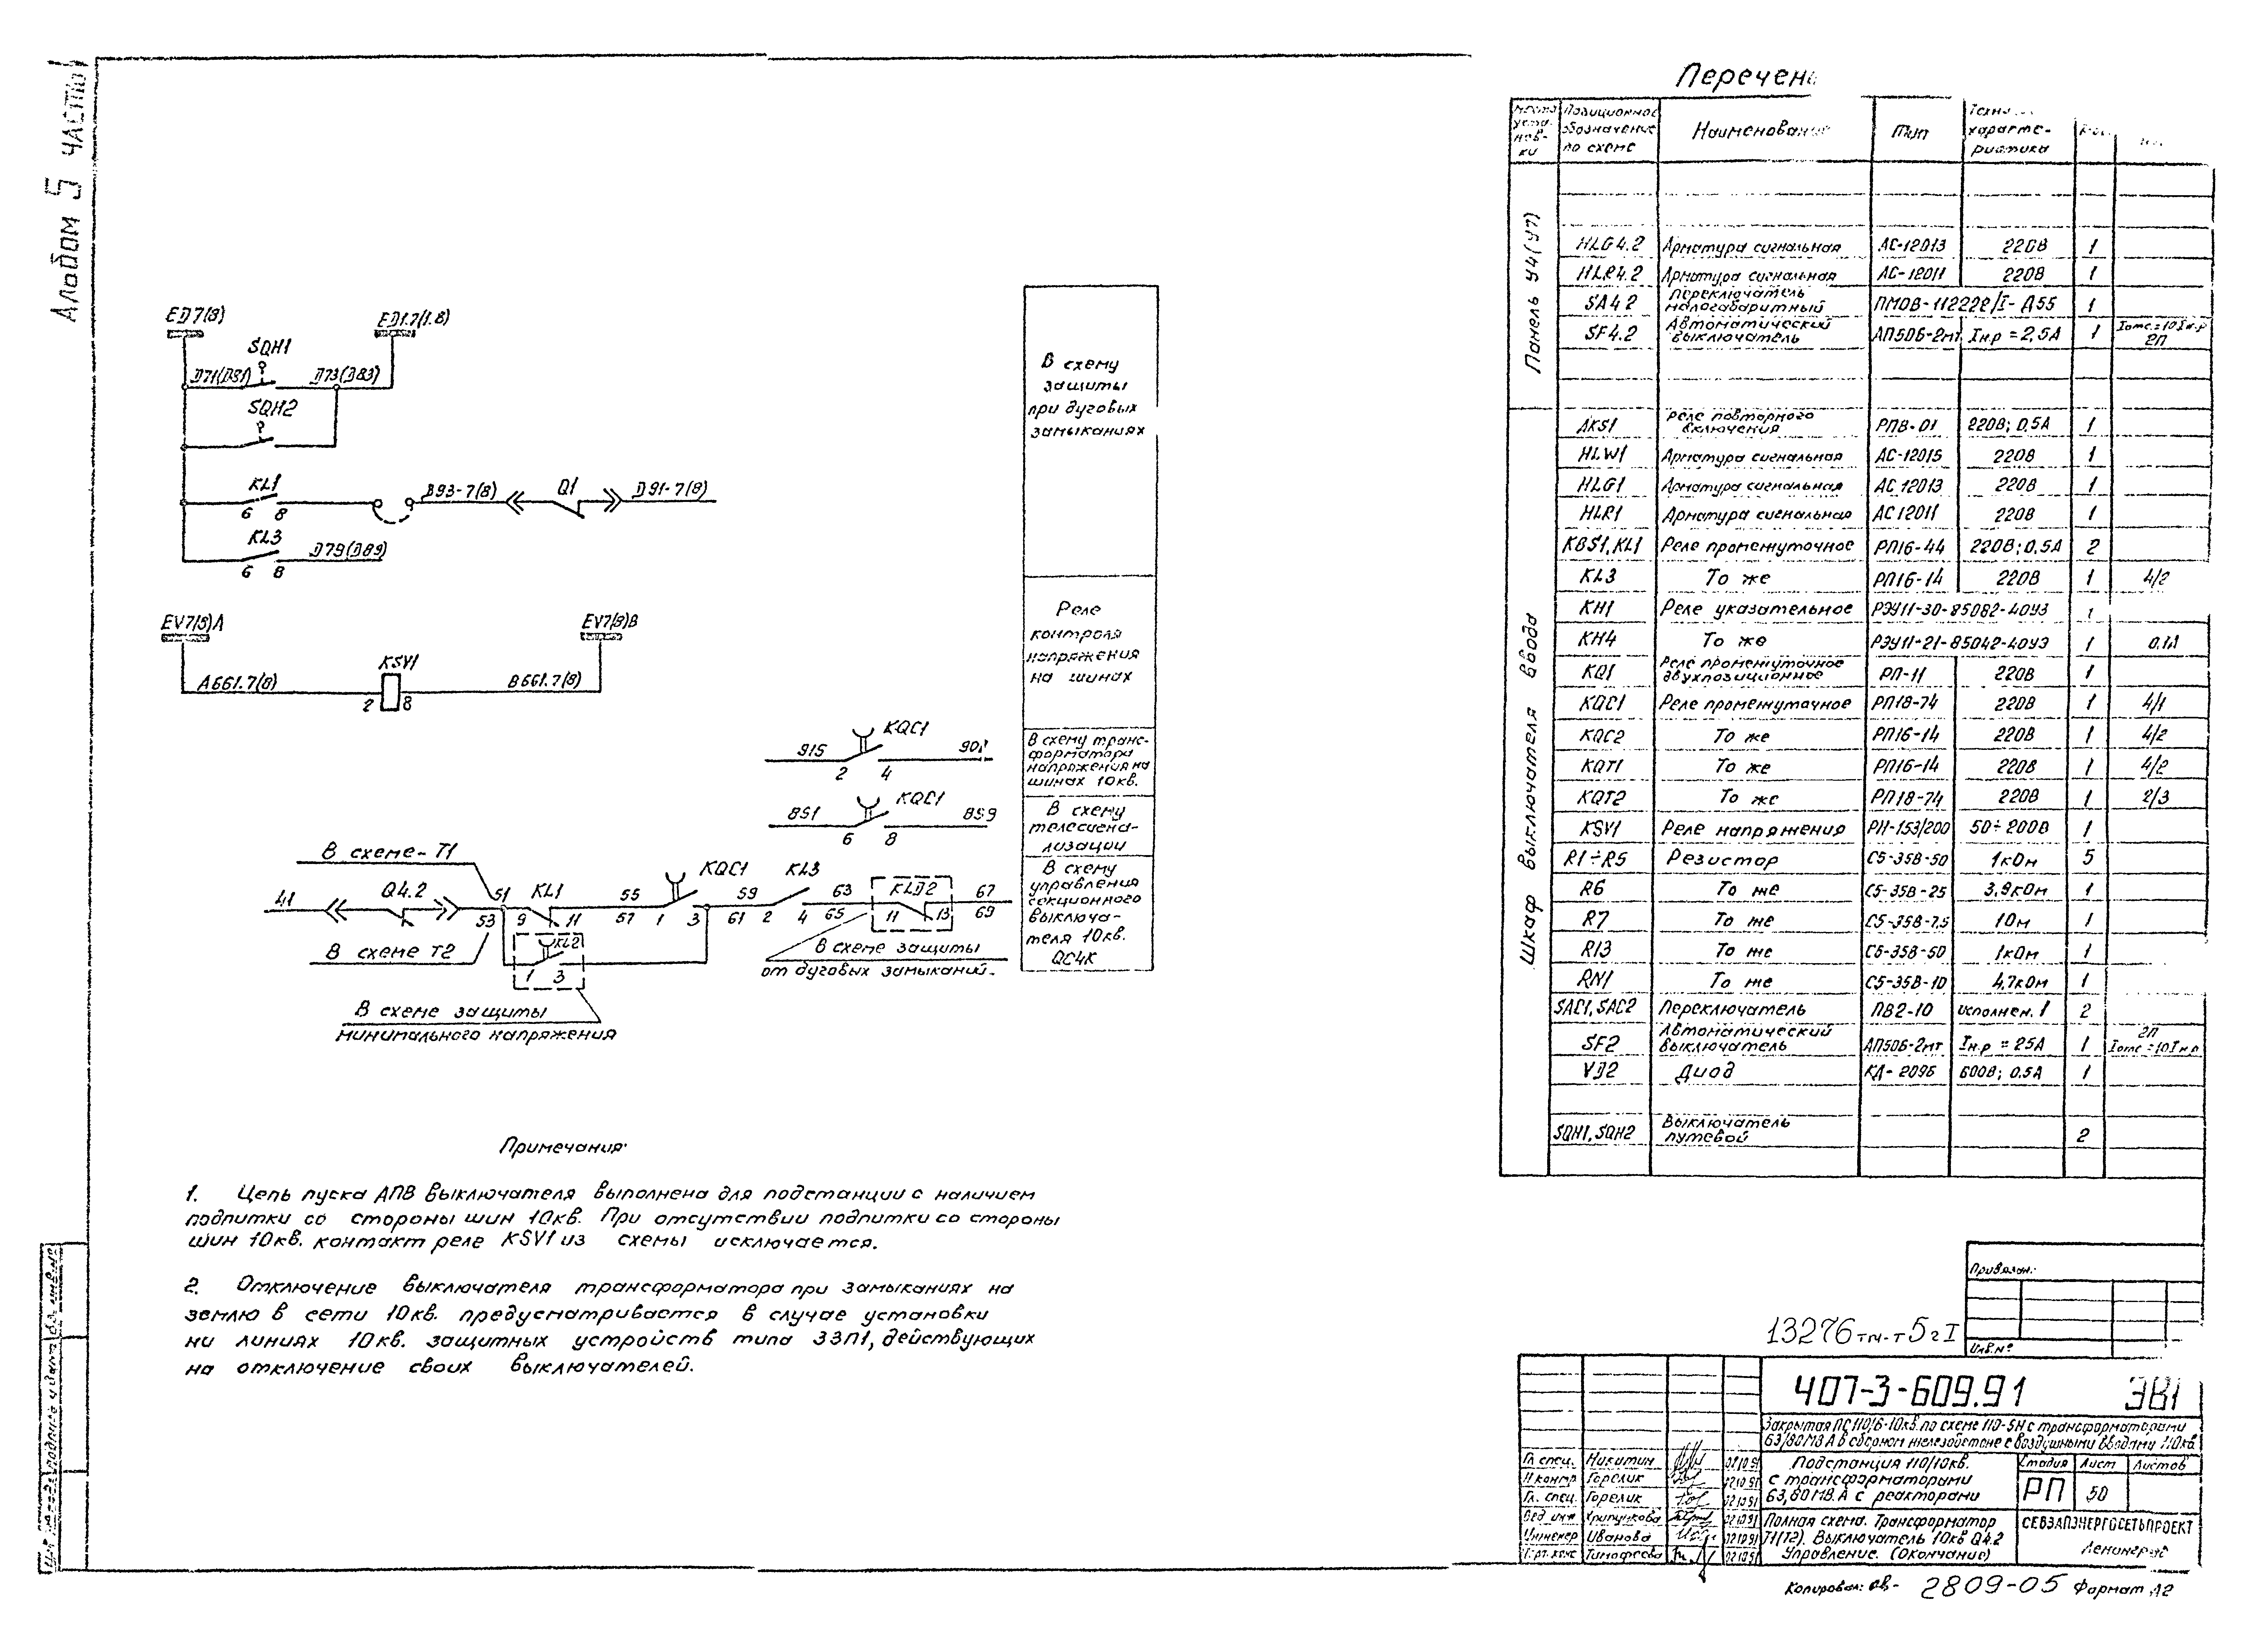 Альбом 5 часть
ED7(8)
ED1.7(1.8)
SQH1
D71(D81)
D73(D83)
SQH2
KL1
6 8
B93-7(8)
Q1
D91-7(8)
KL3
6 8
D79(D89)
EV7(8)A
EV7(8)B
KSV1
A661.7(8)
2 8
B661.7(8)
915
KQC1
2 4
851
KQC1
859
6 8
В схеме-Т1
41
Q4.2
51
53
KL1
9 11
55
57
KQC1
1 3
59
61
KL3
2 4
63
65
KLD2
11 13
67
69
В схеме Т2
KL2
1 3
В схеме защиты
от дуговых замыканий.
В схеме защиты
минимального напряжения
В схему
защиты
при дуговых
замыканиях
Реле
контроля
напряжения
на шинах
В схему транс-
форматора
напряжения на
шинах 10кв.
В схему
телесигна-
лизации
В схему
управления
секционного
выключа-
теля 10кв.
QC4K
Примечания:
1. Цепь пуска АПВ выключателя выполнена для подстанции с наличием
подпитки со стороны шин 10кв. При отсутствии подпитки со стороны
шин 10кв. контакт реле KSV1 из схемы исключается.
2. Отключение выключателя трансформатора при замыканиях на
землю в сети 10кв. предусматривается в случае установки
на линиях 10кв. защитных устройств типа ЗЗП1, действующих
на отключение своих выключателей.
Перечен
Место уста-нов-ки Позиционное обозначение по схеме Наименование Тип Техни характе-ристика
Панель У4(У7)
HLG4.2 Арматура сигнальная АС-12013 220В 1
HLR4.2 Арматура сигнальная АС-12011 220В 1
SA4.2 Переключатель малогабаритный ПМОВ-112222/I-Д55 1
SF4.2 Автоматический выключатель АП50Б-2мт Iн.р=2,5А 1 Iотс.=10Iн.р 2П
Шкаф выключателя ввода
AKS1 Реле повторного включения РПВ-01 220В; 0,5А 1
HLW1 Арматура сигнальная АС-12015 220В 1
HLG1 Арматура сигнальная АС 12013 220В 1
HLR1 Арматура сигнальная АС 12011 220В 1
KBS1, KL1 Реле промежуточное РП16-44 220В; 0,5А 2
KL3 То же РП16-14 220В 1 4/2
KH1 Реле указательное РЭУ11-30-85082-40У3 1
KH4 То же РЭУ11-21-85042-40У3 1
KQ1 Реле промежуточное двухпозиционное РП-11 220В 1
KQC1 Реле промежуточное РП18-74 220В 1 4/1
KQC2 То же РП16-14 220В 1 4/2
KQT1 То же РП16-14 220В 1 4/2
KQT2 То же РП18-74 220В 1 2/3
KSV1 Реле напряжения РН-153/200 50÷200В 1
R1÷R5 Резистор С5-35В-50 1кОм 5
R6 То же С5-35В-25 3,9кОм 1
R7 То же С5-35В-7,5 1Ом 1
R13 То же С5-35В-50 1кОм 1
RN1 То же С5-35В-10 4,7кОм 1
SAC1, SAC2 Переключатель ПВ2-10 исполнен. 1 2
SF2 Автоматический выключатель АП50Б-2мт Iн.р=25А 1 2П Iотс=10Iн.р
VD2 Диод КД-209Б 600В; 0.5А 1
SQH1, SQH2 Выключатель путевой 2
Привязан:
Инв.№
13276тм-т5гI
407-3-609.91 ЭВ1
Закрытая ПС 110/6-10кВ по схеме 110-5Н с трансформаторами
63/80МВА в сборном железобетоне с воздушными вводами 110кв.
Гл. спец. Никитин 02.10.91
Н контр Горелик 02.10.91
Гл. спец. Горелик 02.10.91
Вед. инж Хрипункова 02.10.91
Инженер Иванова 02.10.91
Тимофеева 02.10.91
Подстанция 110/10кв.
с трансформаторами
63,80МВ.А с реакторами
Стадия Лист Листов
РП 50
Полная схема. Трансформатор
Т1(Т2). Выключатель 10кв Q4.2
Управление. (Окончание)
СЕВЗАПЭНЕРГОСЕТЬПРОЕКТ
Ленинград
Копировал: 2809-05 Формат А2